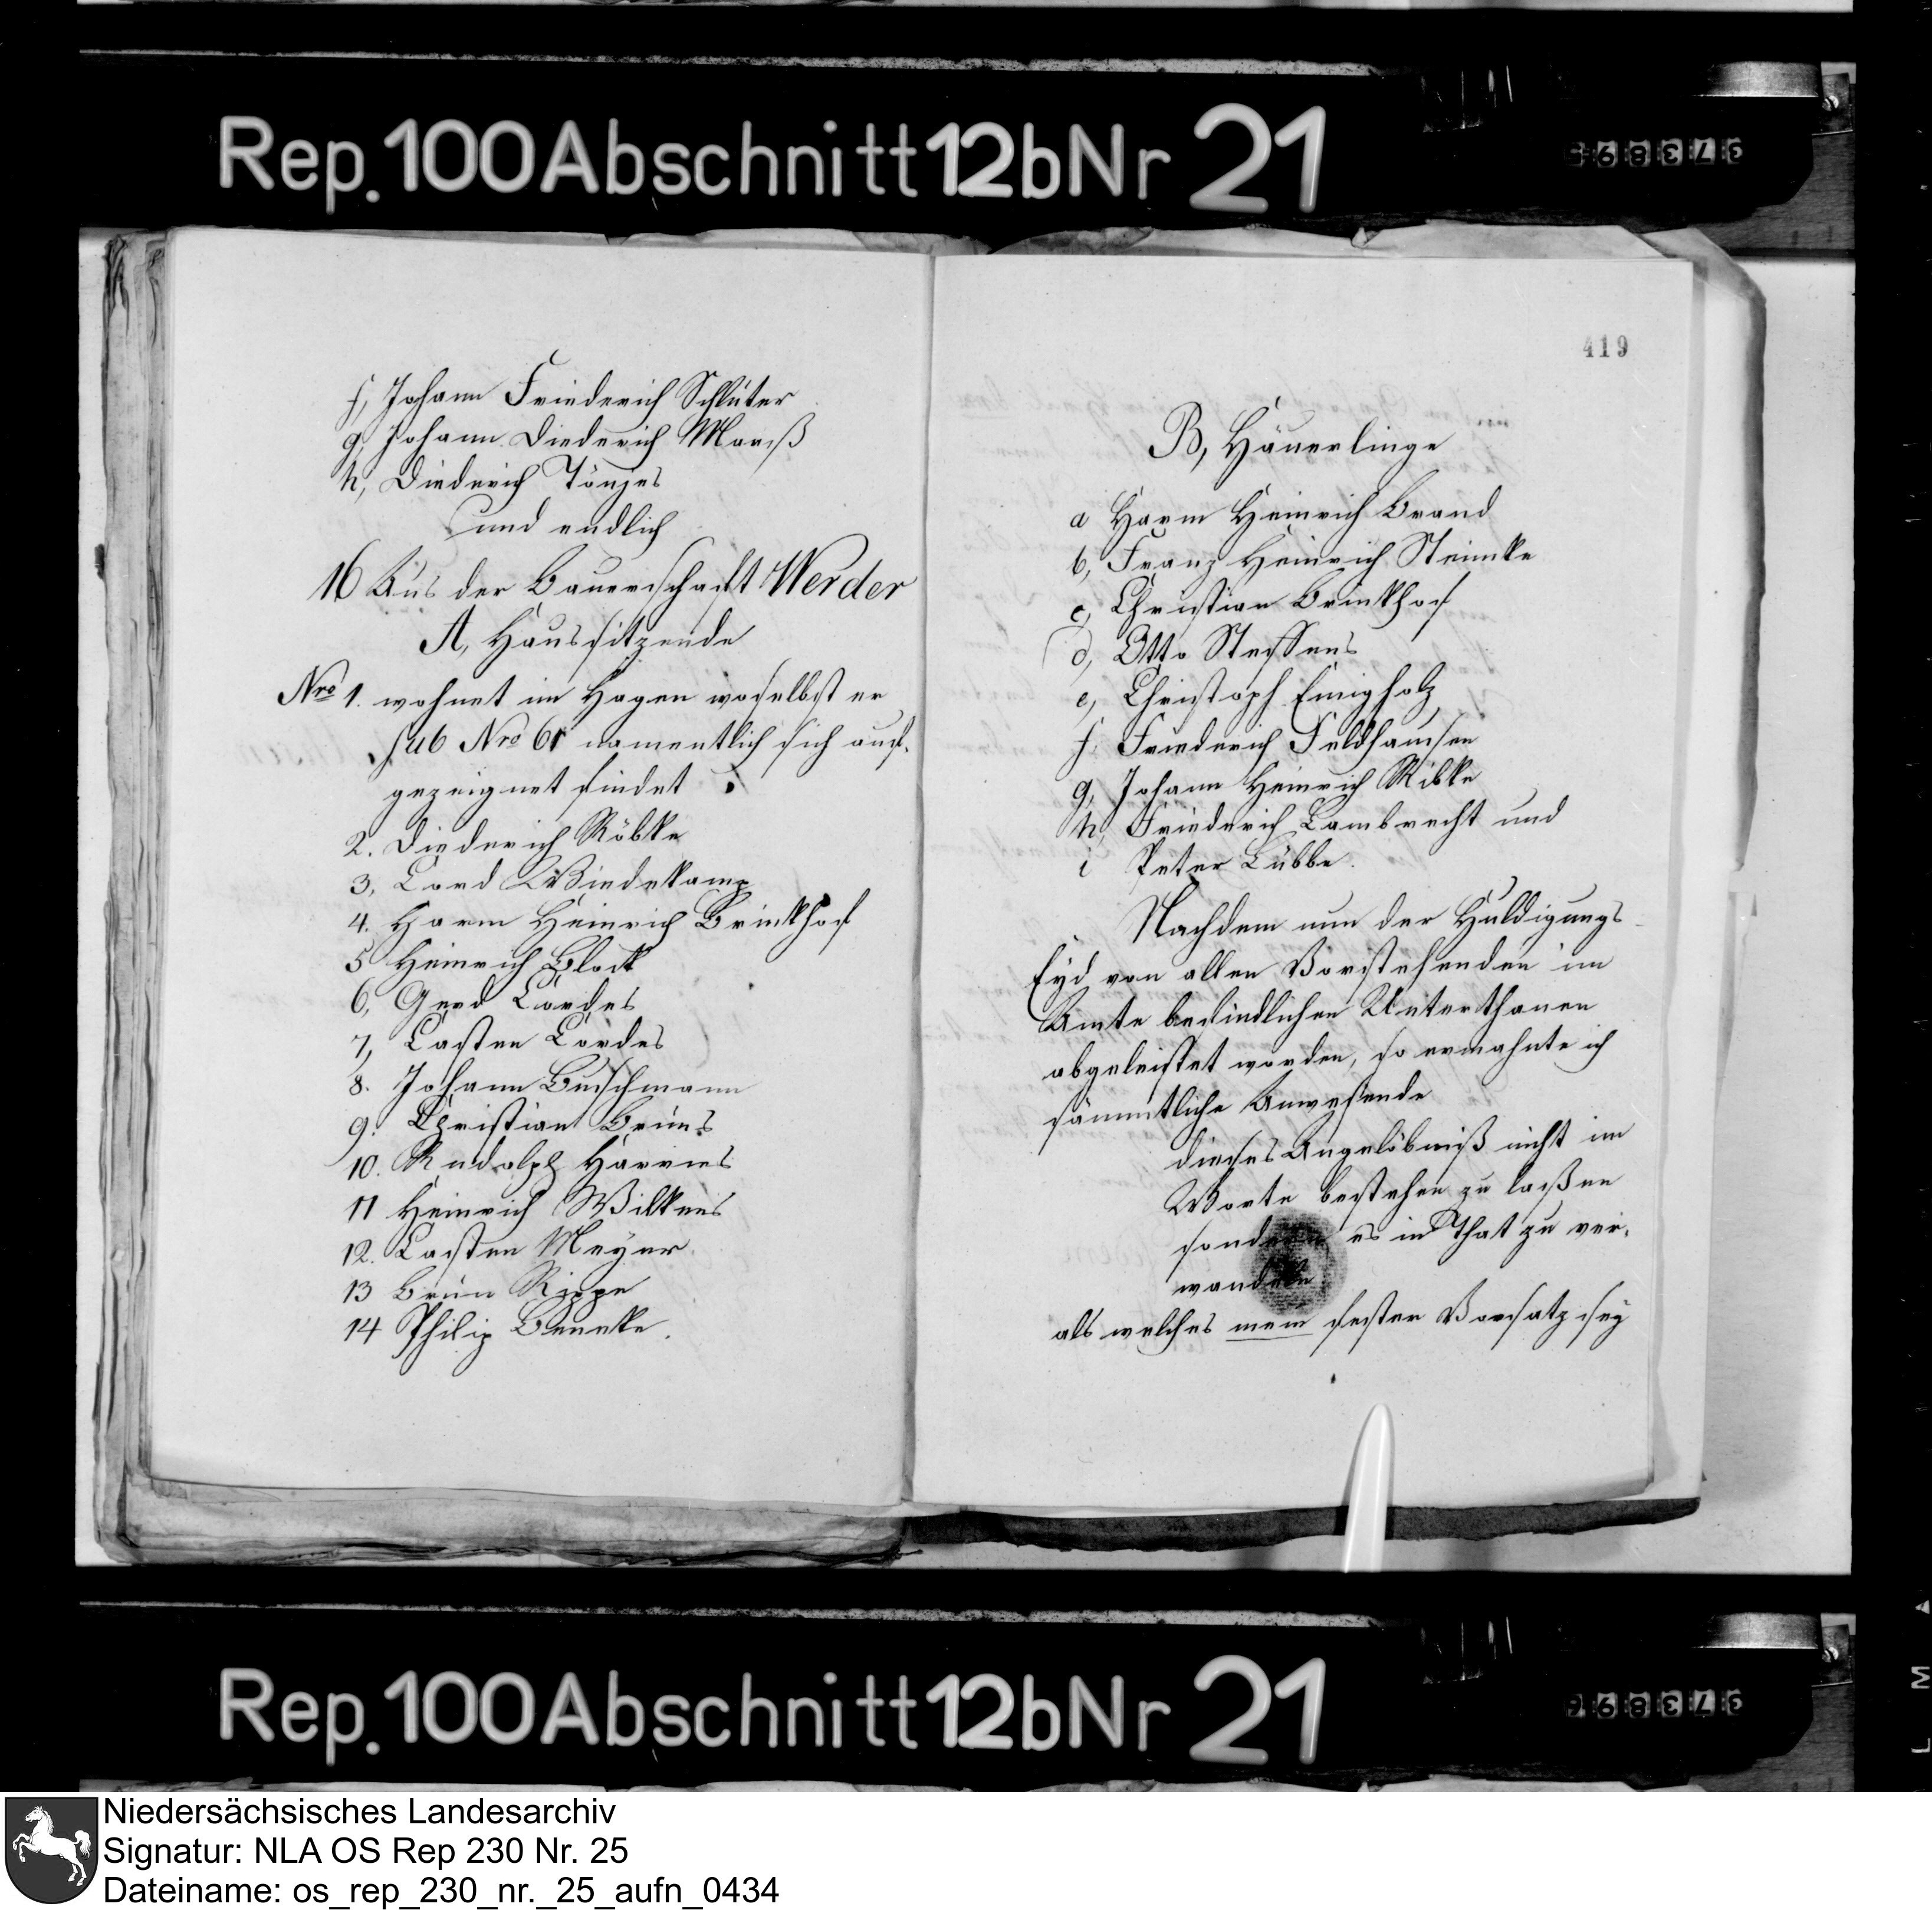 Rep. 100 Abschnitt 12b Nr 21
f, Johann Friederich Schlüter
g, Johann Diederich Marß
h, Diederich Tönjes
und endlich
16 Aus der Bauerschaft Werder
A, Haussitzende
Nro 1. wohnet im Hagen woselbst er
sub Nro 61 namentlich sich auf-
gezeignet findet
2. Diederich Röbke
3, Cord Windekamp
4. Harm Heinrich Brinkhof
5 Heinrich Block
6, Gerd Cordes
7, Casten Cordes
8. Johann Buschmann
9. Christian Bruns
10. Rudolph Harries
11 Heinrich Wilkens
12. Casten Meyer
13 Brün Rippe
14 Philip Beneke.
419
B, Häuerlinge
a Harm Heinrich Brand
b, Franz Heinrich Steimke
c, Christian Brinkhof
d, Otto Steffens
e, Christoph Einigholz
f. Friederich Feldhausen
g, Johann Heinrich Ribke
h, Friederich Lambrecht und
i Peter Lübbe.
Nachdem nun der Huldigungs-
Eyd von allen Vorstehenden im
Amte befindlichen Unterthanen
abgeleistet worden, so ermahnte ich
sämmtliche Anwesende
dieses Angelöbniß nicht im
Worte bestehen zu laßen
sondern es in That zu ver-
wandeln
als welches mein fester Vorsatz sey
Rep. 100 Abschnitt 12b Nr 21
Niedersächsisches Landesarchiv
Signatur: NLA OS Rep 230 Nr. 25
Dateiname: os_rep_230_nr._25_aufn_0434